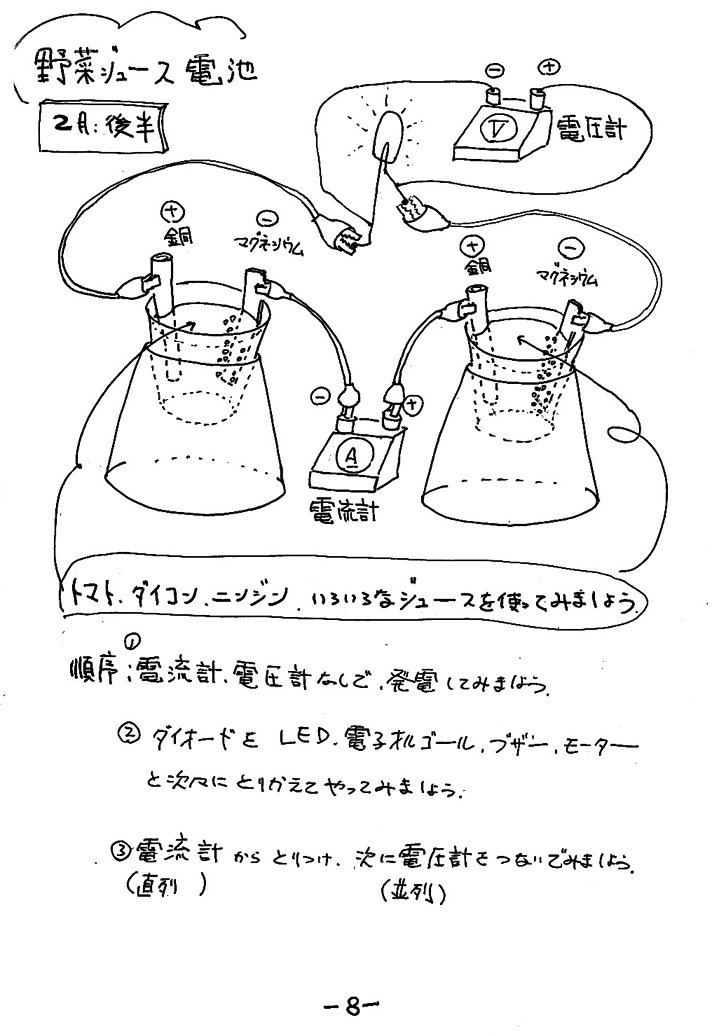 野菜ジュース電池
2月:後半
⊖ ⊕
V
電圧計
⊕
銅
⊖
マグネシウム
⊕
銅
⊖
マグネシウム
⊖ ⊕
A
電流計
トマト、ダイコン、ニンジン、いろいろなジュースを使ってみましょう。
順序:①電流計、電圧計なしで、発電してみましょう。
② ダイオードを LED、電子オルゴール、ブザー、モーター
と次々にとりかえてやってみましょう。
③電流計からとりつけ、次に電圧計をつないでみましょう。
(直列) (並列)
-8-